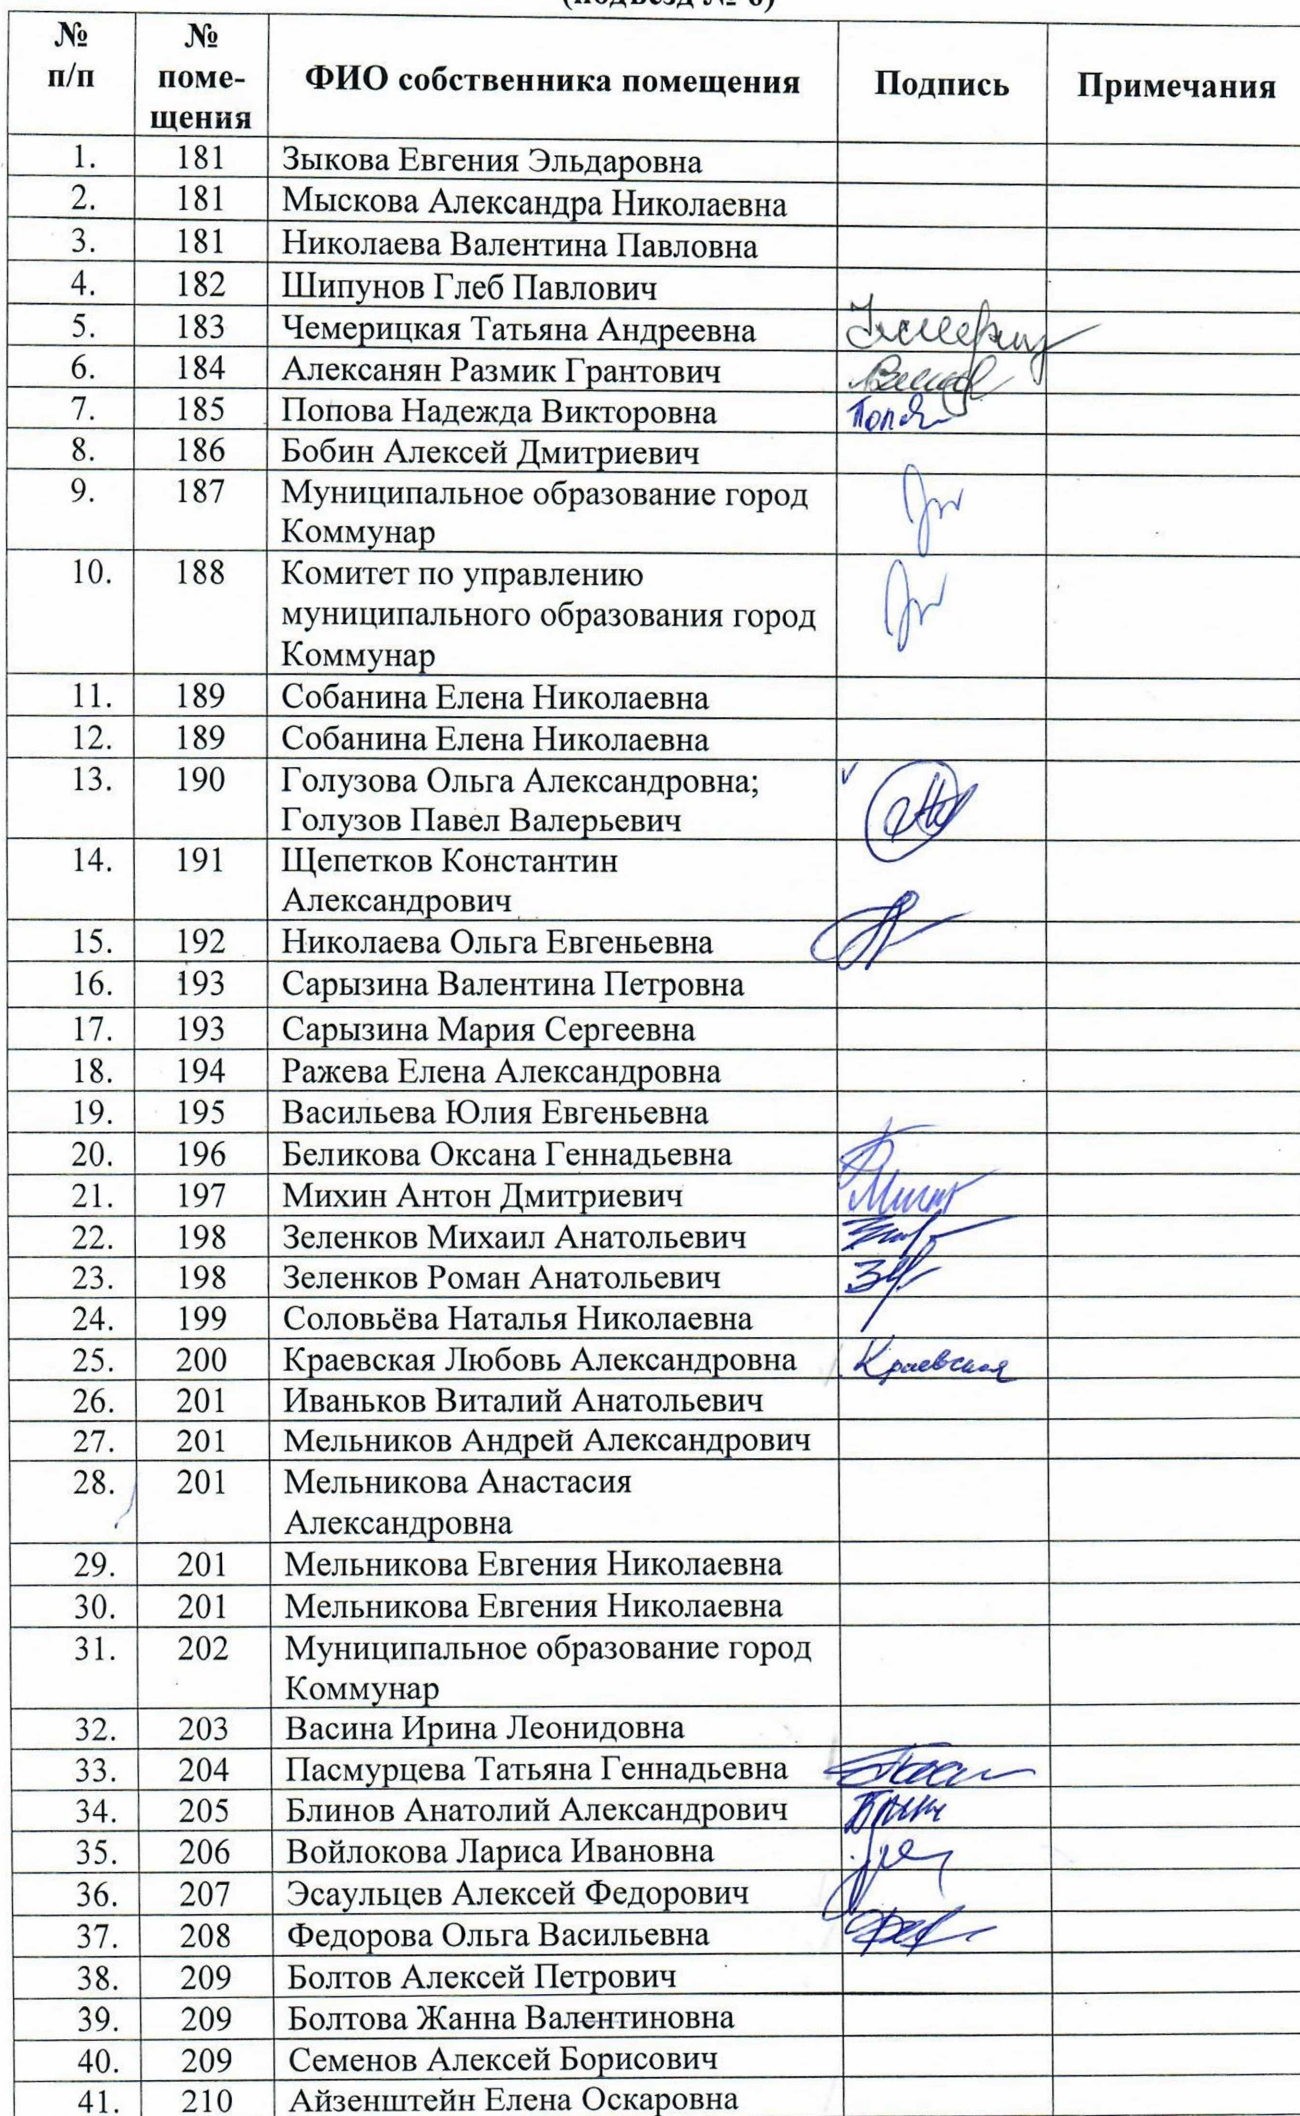 (подъезд № 6)
№ п/п | № поме-щения | ФИО собственника помещения | Подпись | Примечания
1. 181 Зыкова Евгения Эльдаровна
2. 181 Мыскова Александра Николаевна
3. 181 Николаева Валентина Павловна
4. 182 Шипунов Глеб Павлович
5. 183 Чемерицкая Татьяна Андреевна
6. 184 Алексанян Размик Грантович
7. 185 Попова Надежда Викторовна
8. 186 Бобин Алексей Дмитриевич
9. 187 Муниципальное образование город
Коммунар
10. 188 Комитет по управлению
муниципального образования город
Коммунар
11. 189 Собанина Елена Николаевна
12. 189 Собанина Елена Николаевна
13. 190 Голузова Ольга Александровна;
Голузов Павел Валерьевич
14. 191 Щепетков Константин
Александрович
15. 192 Николаева Ольга Евгеньевна
16. 193 Сарызина Валентина Петровна
17. 193 Сарызина Мария Сергеевна
18. 194 Ражева Елена Александровна
19. 195 Васильева Юлия Евгеньевна
20. 196 Беликова Оксана Геннадьевна
21. 197 Михин Антон Дмитриевич
22. 198 Зеленков Михаил Анатольевич
23. 198 Зеленков Роман Анатольевич
24. 199 Соловьёва Наталья Николаевна
25. 200 Краевская Любовь Александровна Краевская
26. 201 Иваньков Виталий Анатольевич
27. 201 Мельников Андрей Александрович
28. 201 Мельникова Анастасия
Александровна
29. 201 Мельникова Евгения Николаевна
30. 201 Мельникова Евгения Николаевна
31. 202 Муниципальное образование город
Коммунар
32. 203 Васина Ирина Леонидовна
33. 204 Пасмурцева Татьяна Геннадьевна
34. 205 Блинов Анатолий Александрович
35. 206 Войлокова Лариса Ивановна
36. 207 Эсаульцев Алексей Федорович
37. 208 Федорова Ольга Васильевна
38. 209 Болтов Алексей Петрович
39. 209 Болтова Жанна Валентиновна
40. 209 Семенов Алексей Борисович
41. 210 Айзенштейн Елена Оскаровна